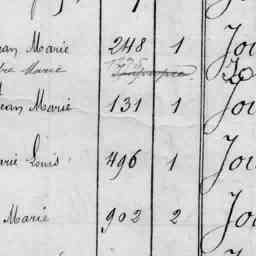 ean Marie 248 1 Jou
Marie
ean Marie 131 1 Jou
arie Louis 496 1 Jou
Marie 902 2 Jou